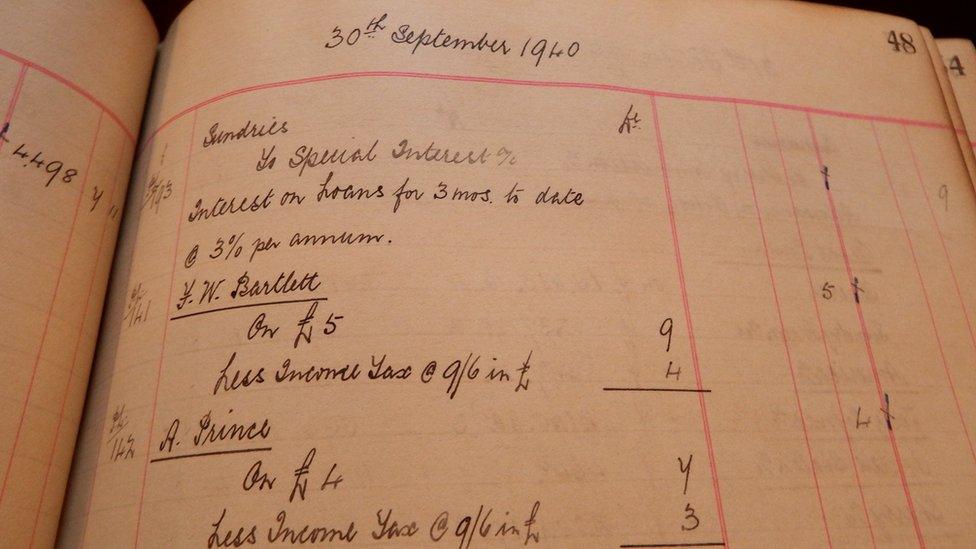 30th September 1940
48
4
4498
Sundries
To Special Interest %
93
Interest on Loans for 3 mos. to date
@ 3% per annum.
141
F. W. Bartlett
5
On £ 5
9
Less Income Tax @ 9/6 in £
4
142
A. Prince
4
On £ 4
7
Less Income Tax @ 9/6 in £
3